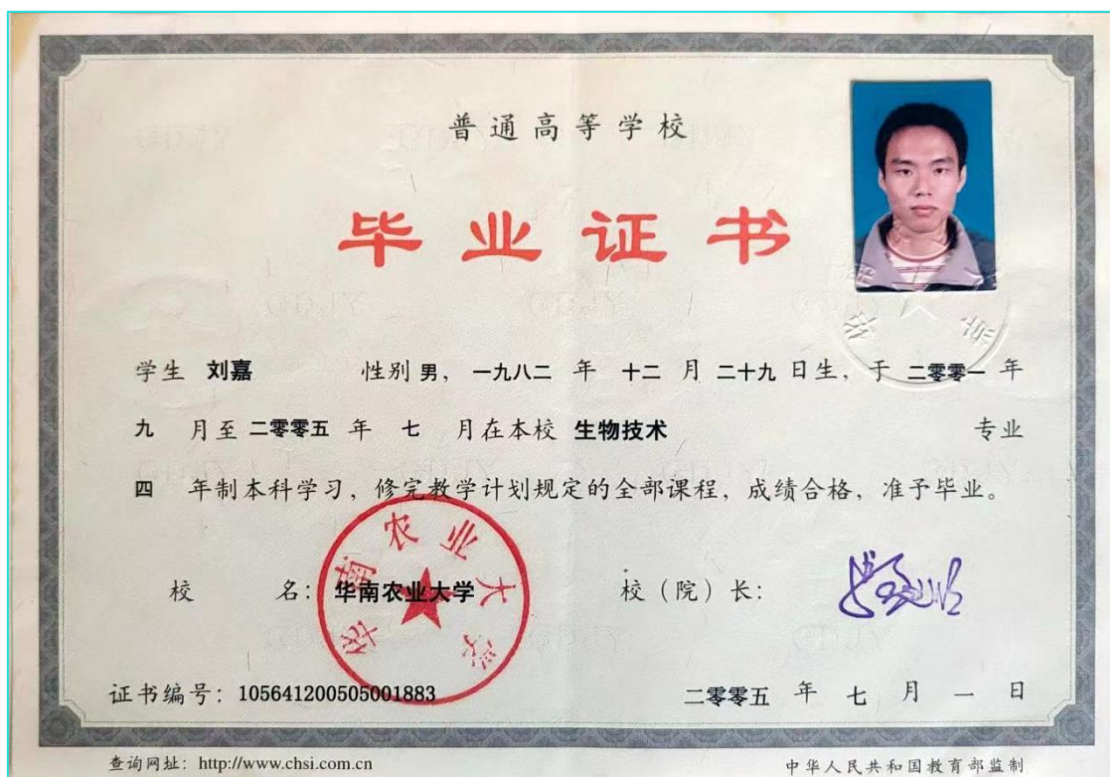 普通高等学校
毕业证书
学生 刘嘉 性别 男, 一九八二 年 十二 月 二十九 日生, 于 二零零一 年
九 月至 二零零五 年 七 月在本校 生物技术 专业
四 年制本科学习, 修完教学计划规定的全部课程, 成绩合格, 准予毕业。
校 名: 华南农业大学 校(院)长:
华南农业大学
证书编号: 105641200505001883 二零零五 年 七 月 一 日
查询网址: http://www.chsi.com.cn 中华人民共和国教育部监制